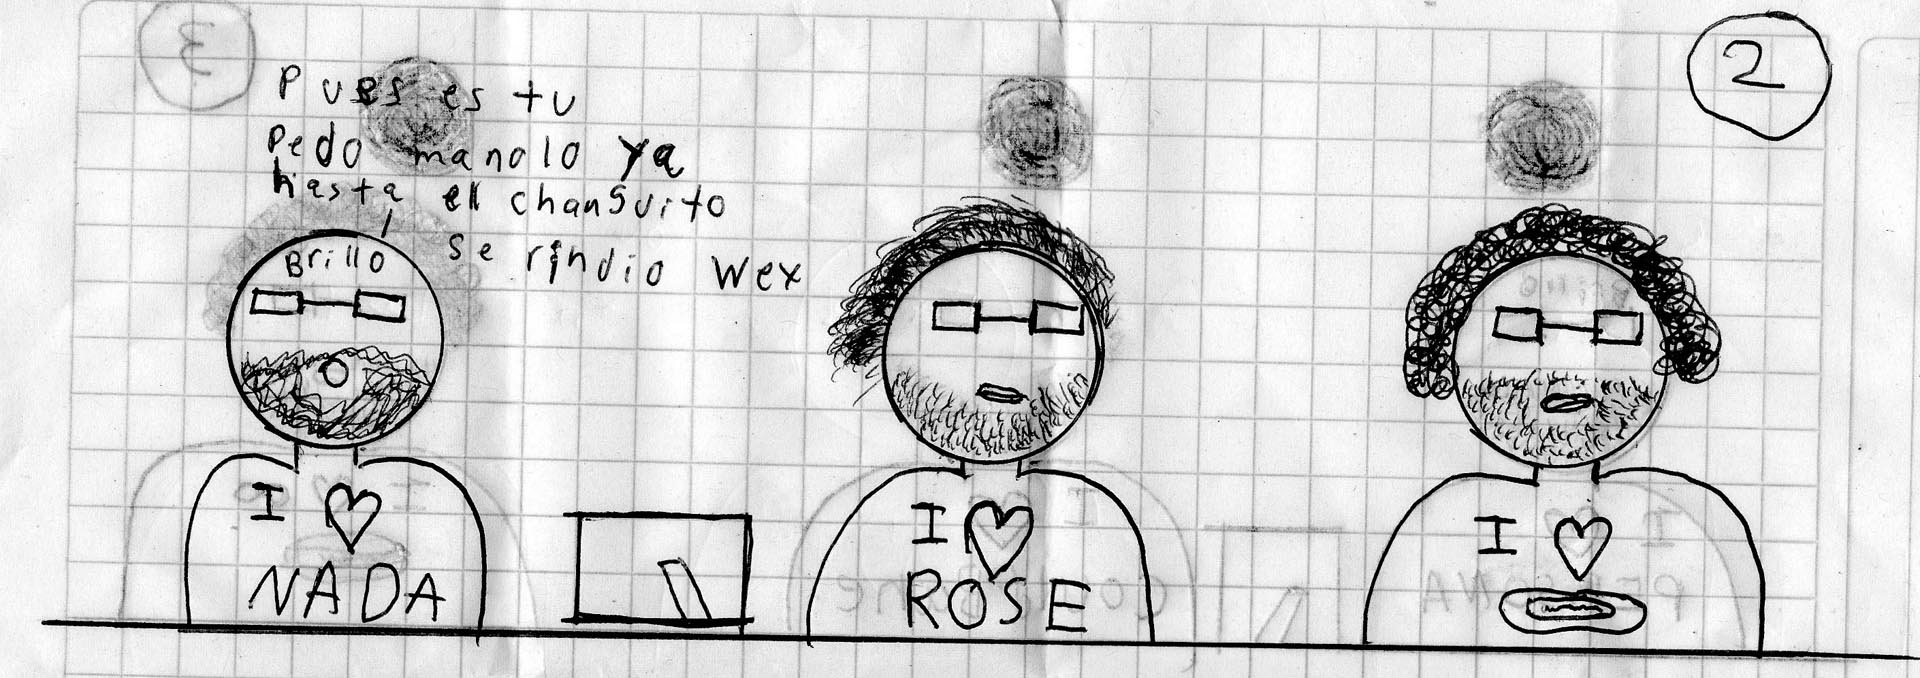 2
Pues es tu
Pedo manolo ya
hasta el changuito
se rindio wex
Brillo
I ♡
NADA
I ♡
ROSE
I ♡